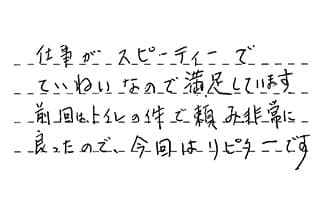 仕事が スピーティーで
ていねいなので満足しています
前回はトイレの件で頼み非常に
良ったので、今回はリピターです